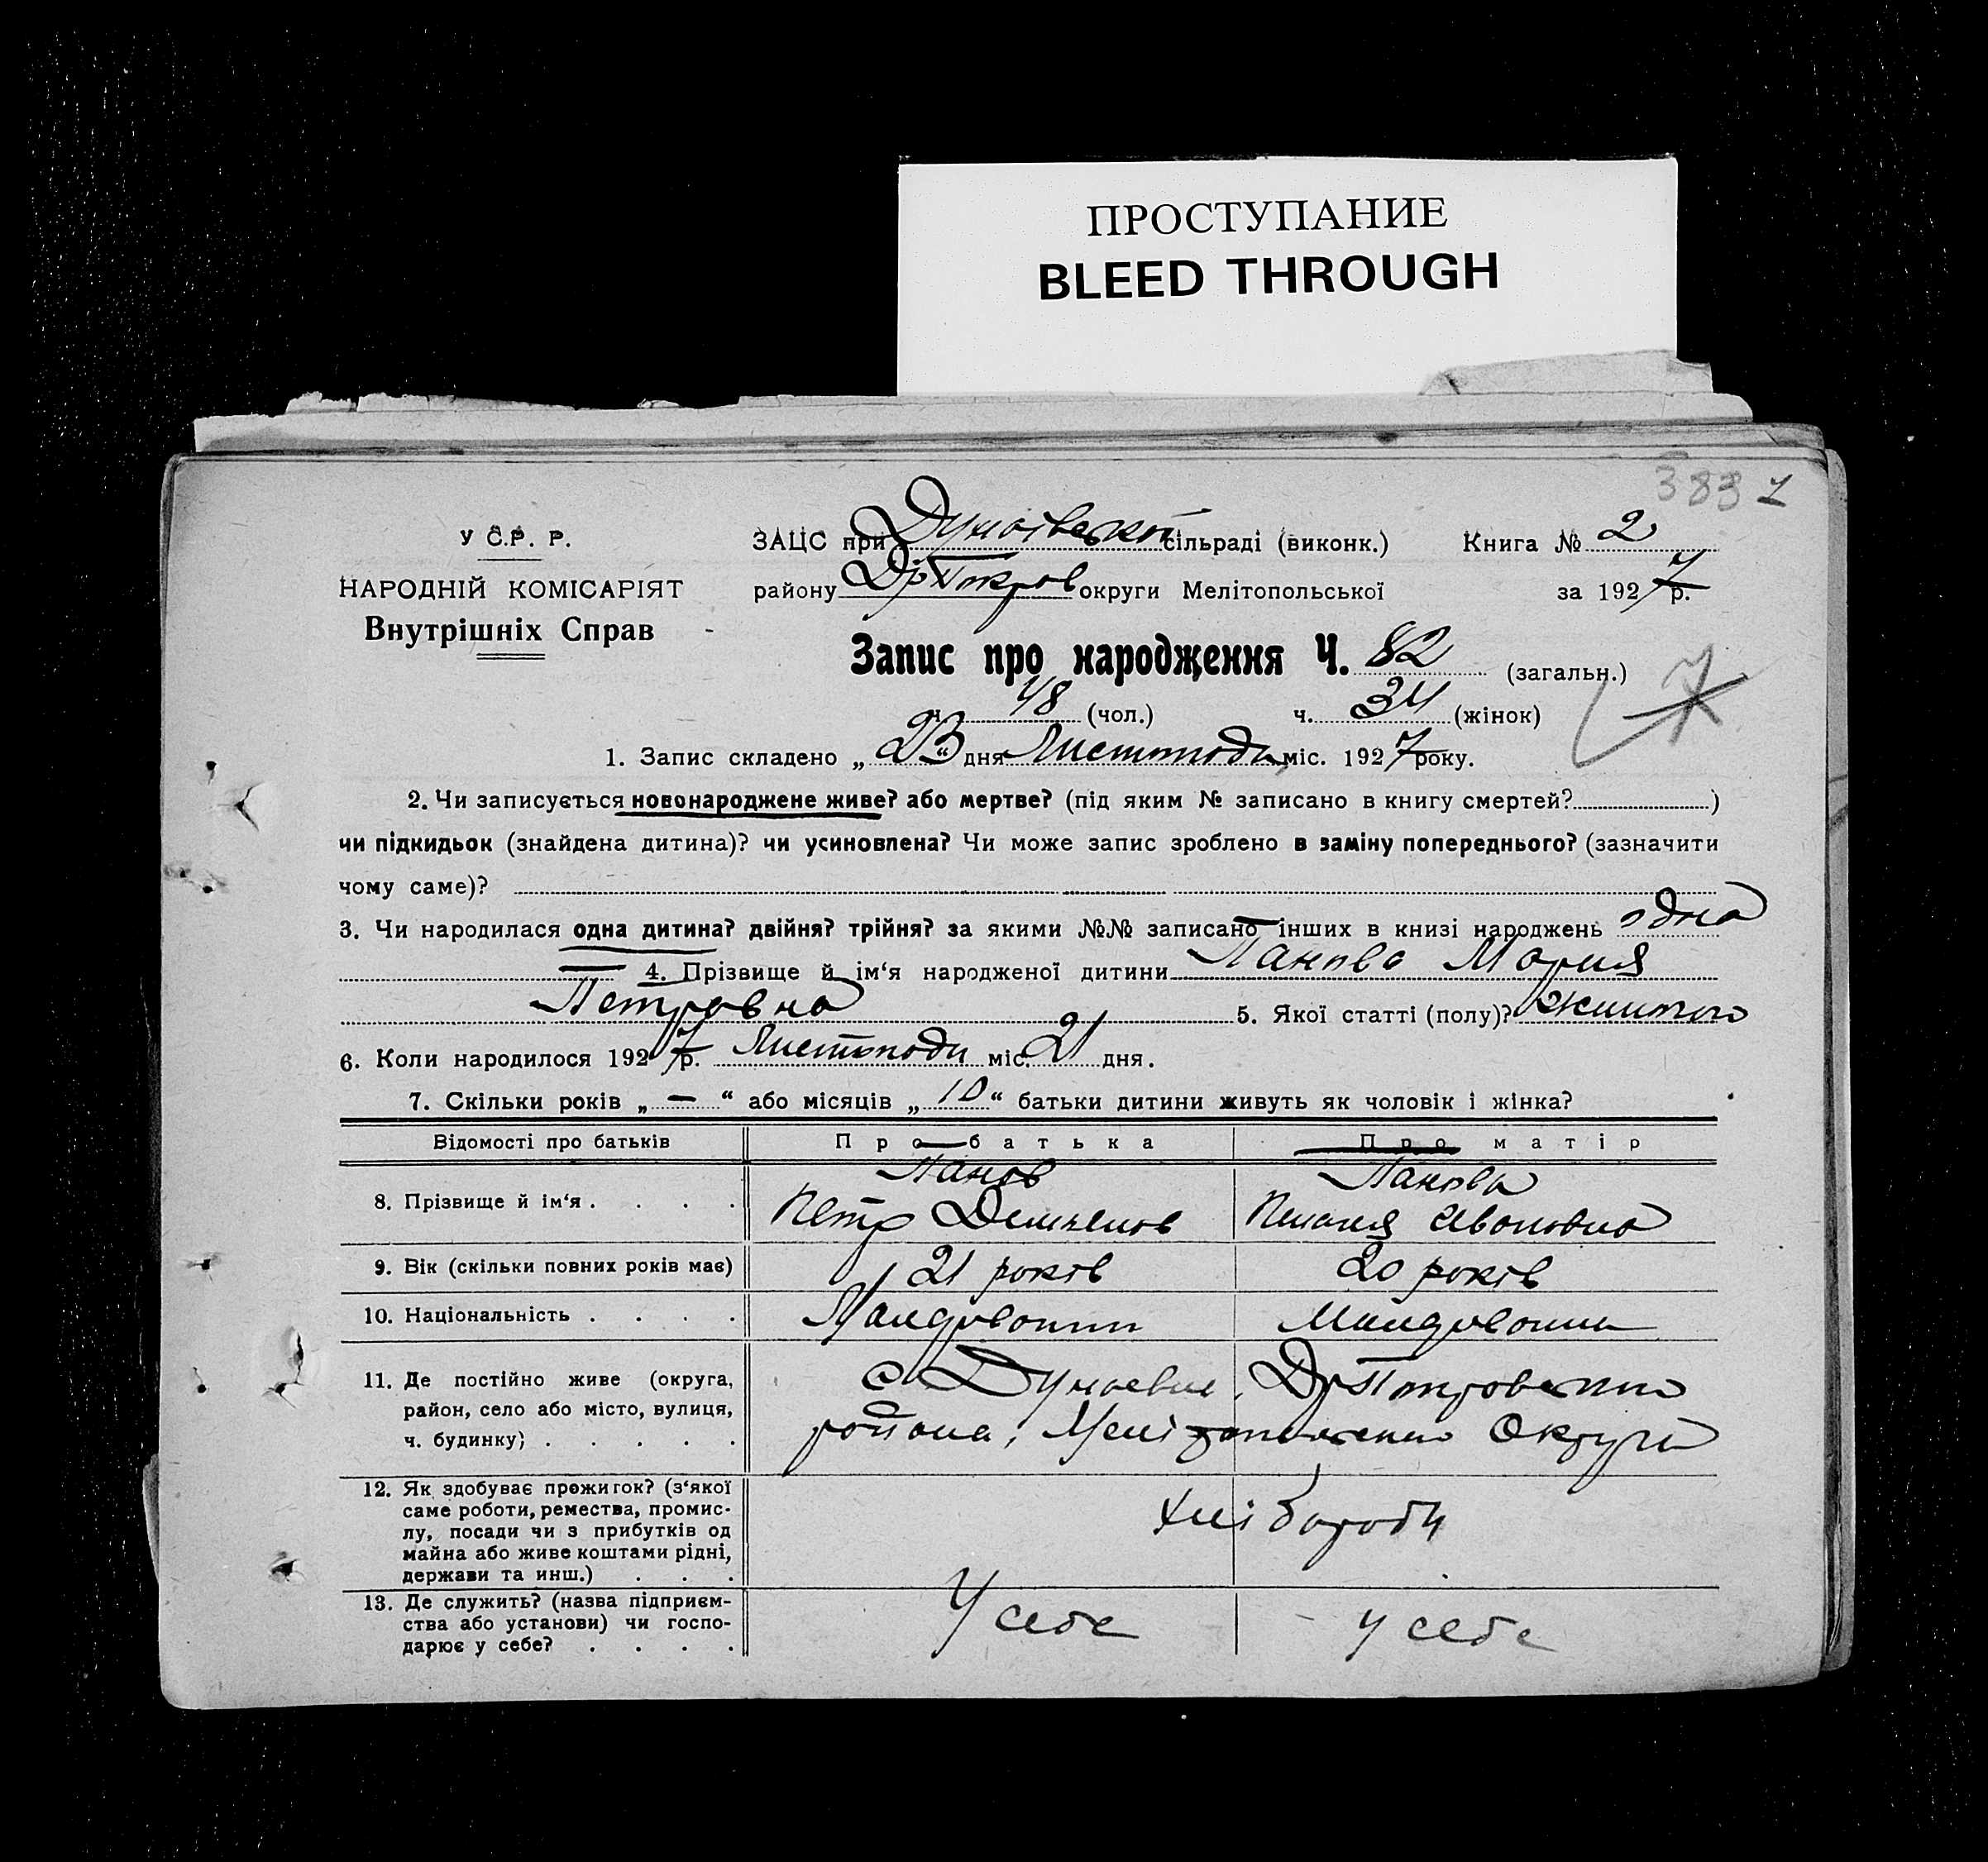 ПРОСТУПАНИЕ
BLEED THROUGH
383 1
У С.Р. Р.
НАРОДНІЙ КОМІСАРІЯТ
Внутрішніх Справ
ЗАЦС при Дунаівській сільраді (виконк.) Книга № 2
району округи Мелітопольської за 1927 р.
Запис про народження Ч. 82 (загальн.)
ч. 48 (чол.) ч. 34 (жінок)
7
1. Запис складено „ 23 “ дня Листопада міс. 1927 року.
2. Чи записується новонароджене живе? або мертве? (під яким № записано в книгу смертей? )
чи підкидьок (знайдена дитина)? чи усиновлена? Чи може запис зроблено в заміну попереднього? (зазначити
чому саме)?
3. Чи народилася одна дитина? двійня? трійня? за якими №№ записано інших в книзі народжень одна
4. Прізвище й ім‘я народженої дитини Панова Мария
Петровна 5. Якої статті (полу)?
6. Коли народилося 1927 р. Листопада міс. 21 дня.
7. Скільки років „ — “ або місяців „ 10 “ батьки дитини живуть як чоловік і жінка?
Відомості про батьків Про батька Про матір
8. Прізвище й ім‘я . . . . Панов Петр Панова Пелагея Ивановна
9. Вік (скільки повних років має) 21 років 20 років
10. Національність . . . . Молдованин Молдованка
11. Де постійно живе (округа,
район, село або місто, вулиця,
ч. будинку) . . . . .
с Дунаевка,
района, Мелітопольської Округи
12. Як здобуває прожиток? (з‘якої
саме роботи, ремества, промис-
лу, посади чи з прибутків од
майна або живе коштами рідні,
держави та инш.) . . .
Хлібороби
13. Де служить? (назва підприєм-
ства або установи) чи госпо-
дарює у себе? . . . .
У себе у себе